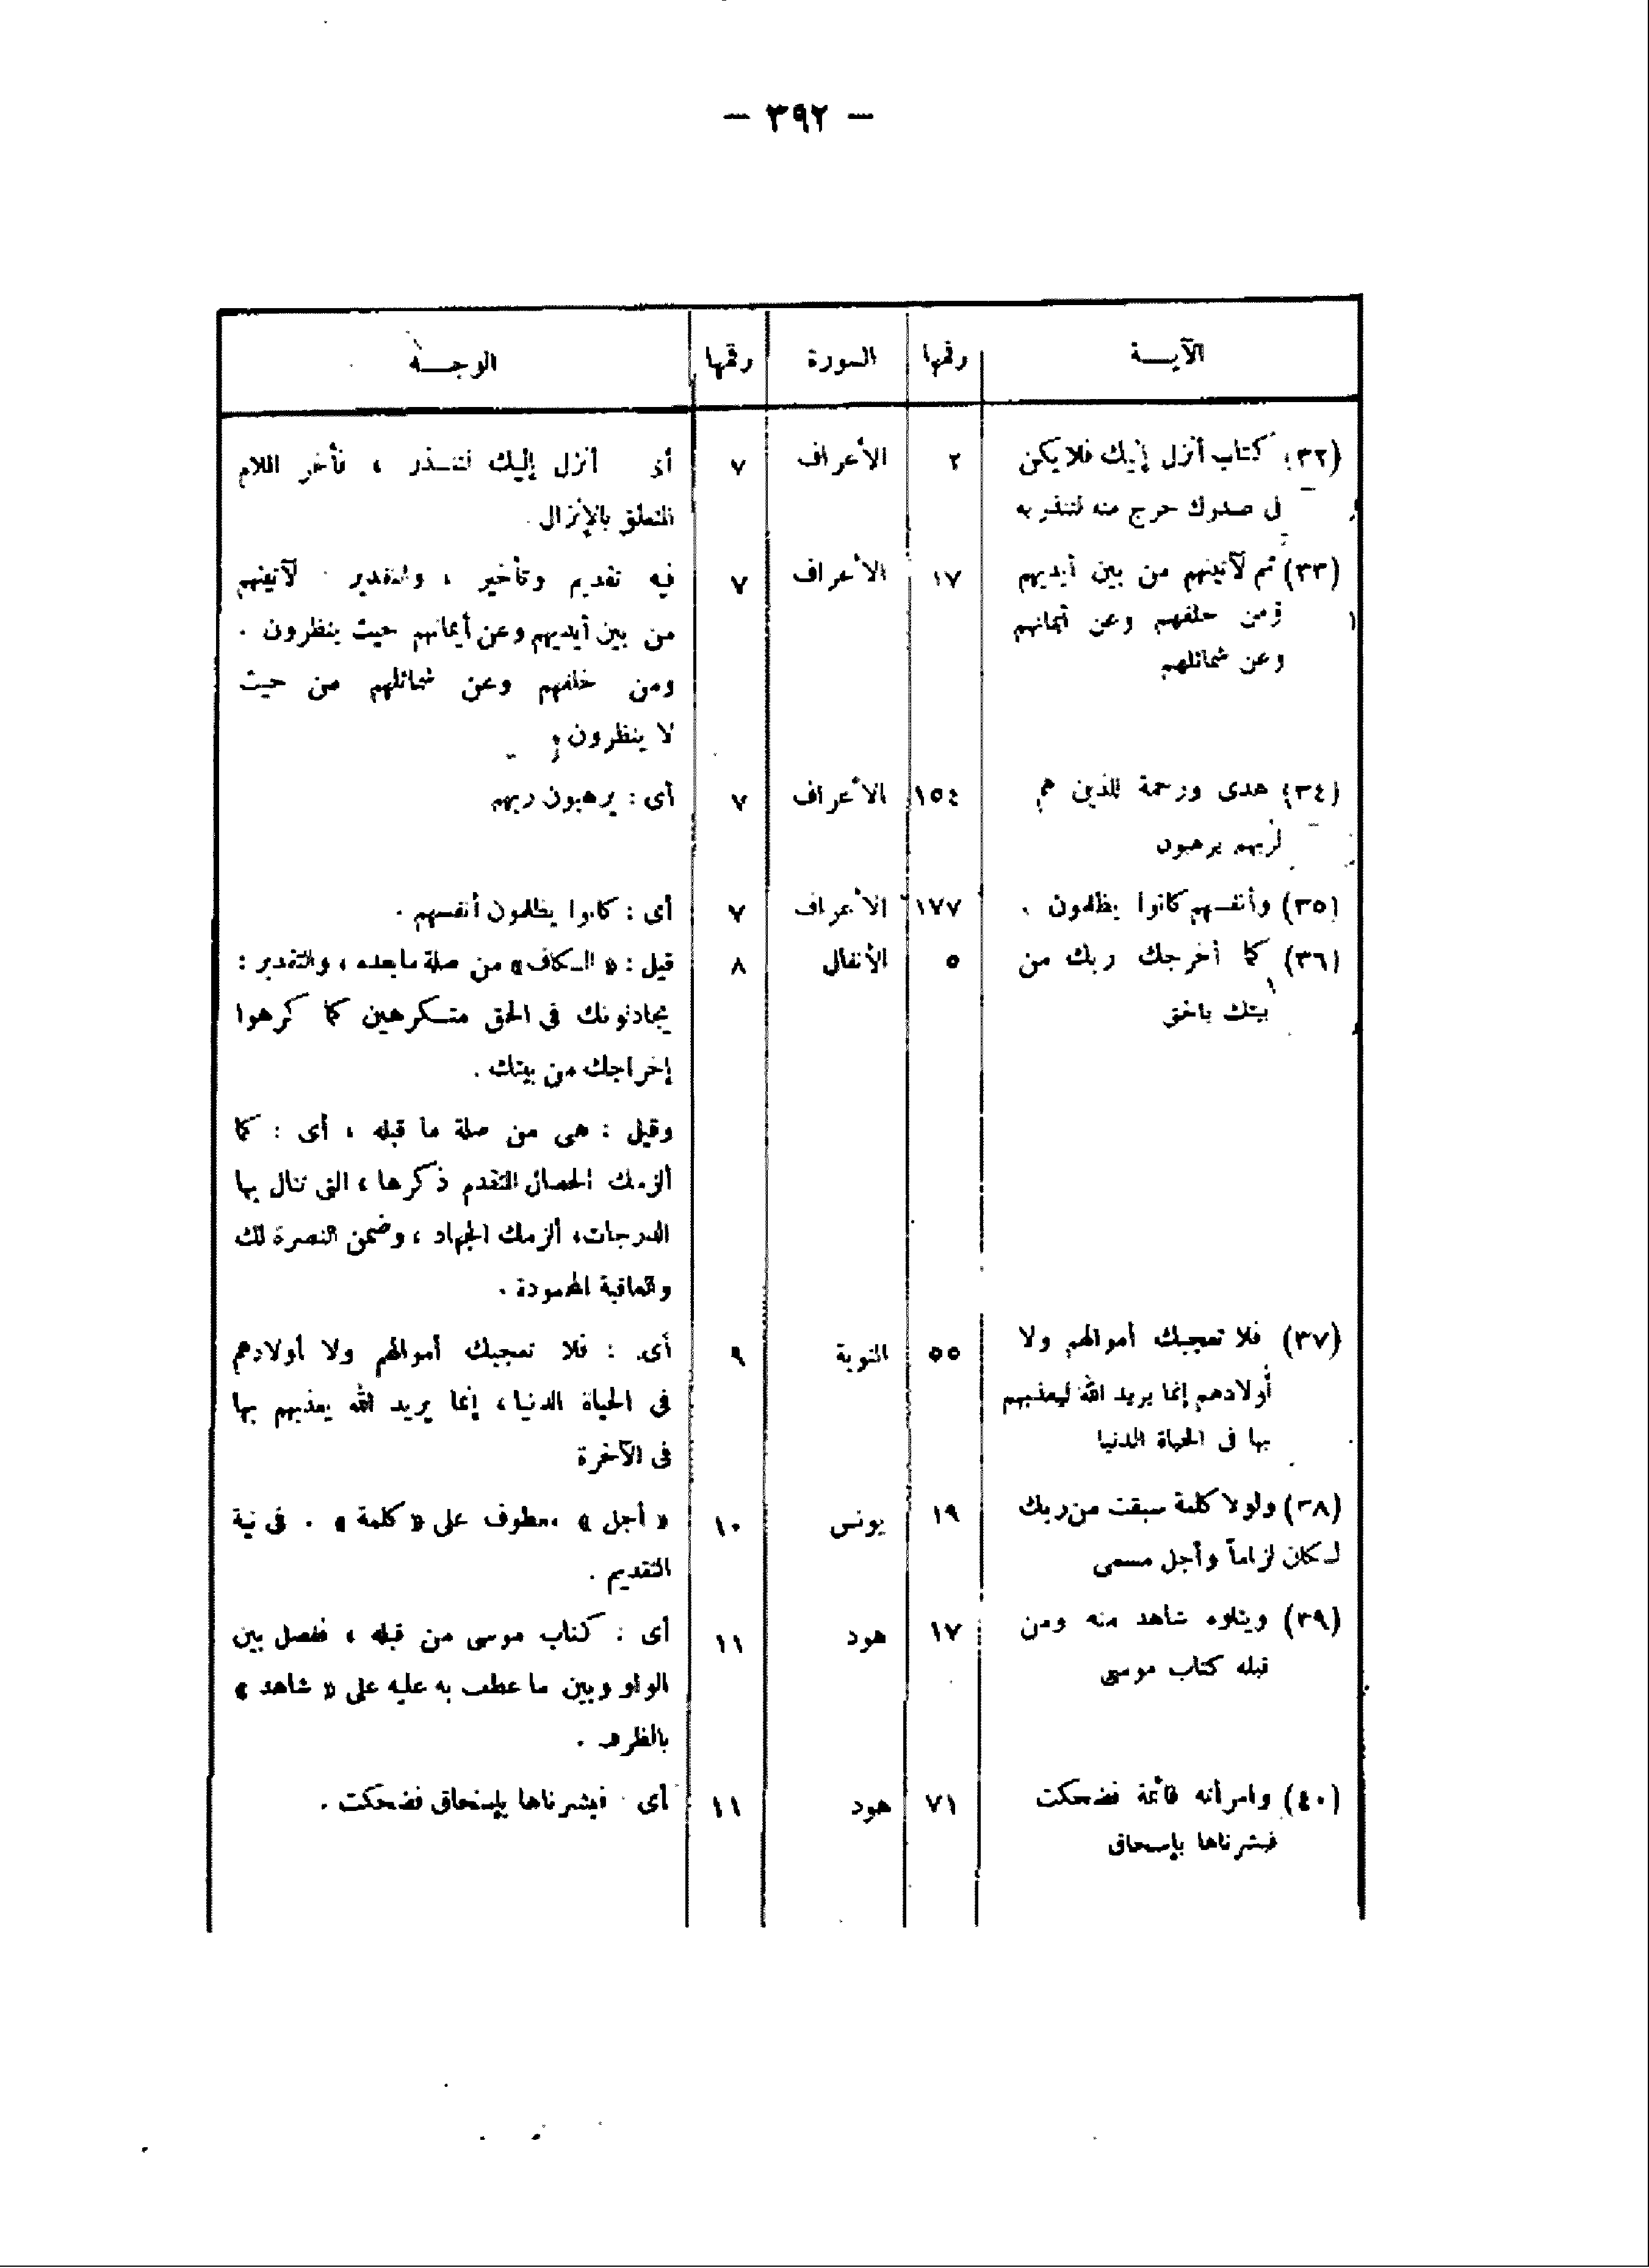 — ٣٩٢ —
الآيـــة رقمها السورة رقمها الوجـــه
(٣٢) كتاب أنزل إليك فلا يكن ٢ الأعراف ٧ أى أنزل إليك لتنـــذر ، فأخر اللام
فى صدرك حرج منه لتنذر به المتعلق بالإنزال .
(٣٣) ثم لآتينهم من بين أيديهم ١٧ الأعراف ٧ فيه تقديم وتأخير ، والتقدير لآتينهم
ومن خلفهم وعن أيمانهم من بين أيديهم وعن أيمانهم حيث ينظرون .
وعن شمائلهم ومن خلفهم وعن شمائلهم من حيث
لا ينظرون
(٣٤) هدى ورحمة للذين هم ١٥٤ الأعراف ٧ أى : يرهبون ربهم
لربهم يرهبون
(٣٥) وأنفسهم كانوا يظلمون . ١٧٧ الأعراف ٧ أى : كانوا يظلمون أنفسهم .
(٣٦) كما أخرجك ربك من ٥ الأنفال ٨ قيل : « الـكاف» من صلة ما بعده ، والتقدير :
بيتك بالحق يجادلونك فى الحق متـكرهين كما كرهوا
إخراجك من بيتك .
وقيل : هى من صلة ما قبله ، أى : كما
ألزمك الخصال المتقدم ذكرها ، التى تنال بها
الدرجات، ألزمك الجهاد ، وضمن النصرة لك
والعاقبة المحمودة .
(٣٧) فلا تعجبك أموالهم ولا ٥٥ التوبة ٩ أى : فلا تعجبك أموالهم ولا أولادهم
أولادهم إنما يريد الله ليعذبهم فى الحياة الدنيا ، إنما يريد الله يعذبهم بها
بها فى الحياة الدنيا فى الآخرة
(٣٨) ولولا كلمة سبقت من ربك ١٩ يونس ١٠ « أجل » معطوف على « كلمة » . فى نية
لـكان لزاماً وأجل مسمى التقديم .
(٣٩) ويتلوه شاهد منه ومن ١٧ هود ١١ أى : كتاب موسى من قبله ، ففصل بين
قبله كتاب موسى الواو وبين ما عطف به عليه على « شاهد »
بالظرف .
(٤٠) وامرأته قائمة فضحكت ٧١ هود ١١ أى فبشرناها بإسحاق فضحكت .
فبشرناها بإسحاق